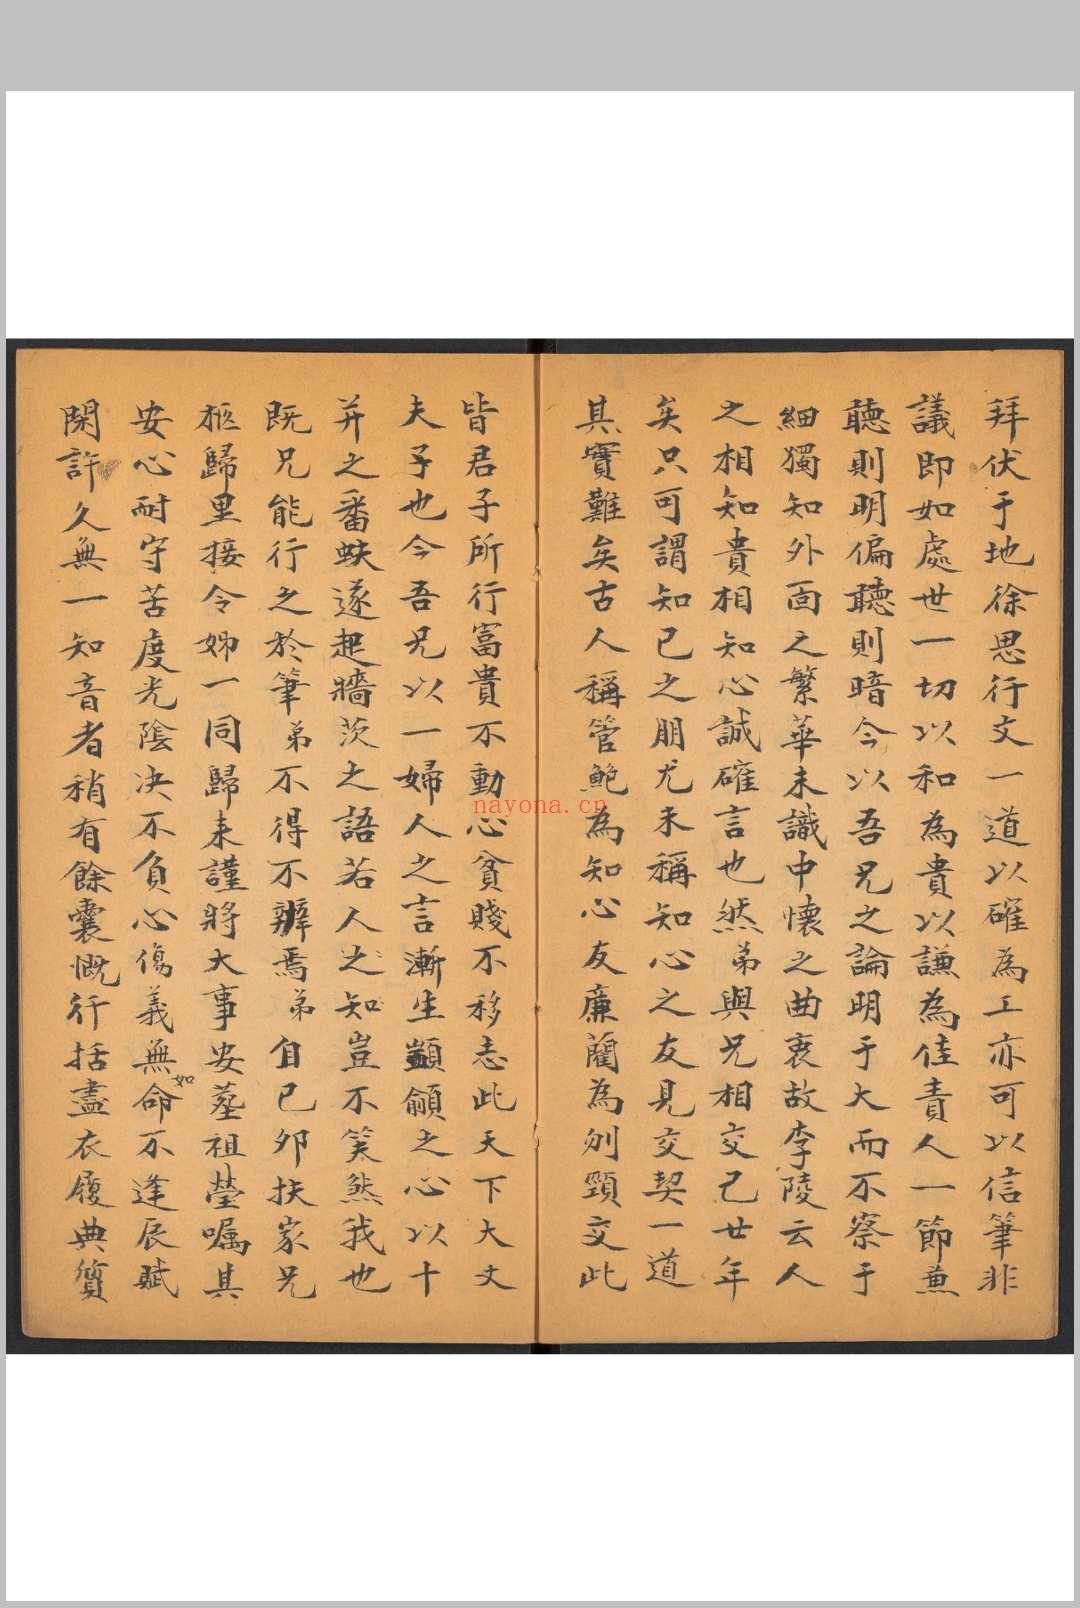 拜伏于地徐思行文一道以確為工亦可以信筆非
議即如處世一切以和為貴以謙為佳責人一節兼
聽則明偏聽則暗今以吾兄之論明于大而不察于
細獨知外面之繁華未識中懷之曲衷故李陵云人
之相知貴相知心誠確言也然弟與兄相交已廿年
矣只可謂知已之朋尤未稱知心之友見交契一道
其實難矣古人稱管鮑為知心友廉藺為刎頸交此
皆君子所行富貴不動心貧賤不移志此天下大丈
夫子也今吾兄以一婦人之言漸生顓顢之心以十
并之番蚨遂起牆茨之語若人之知豈不笑煞我也
既兄能行之於筆弟不得不辦焉弟自已卯扶家兄
柩歸里接令姊一同歸來謹將大事安葬祖塋囑其
安心耐守苦度光陰决不負心傷義無如命不逢辰賦
閑許久無一知音者稍有餘囊慨行括盡衣履典質
nayona.cn